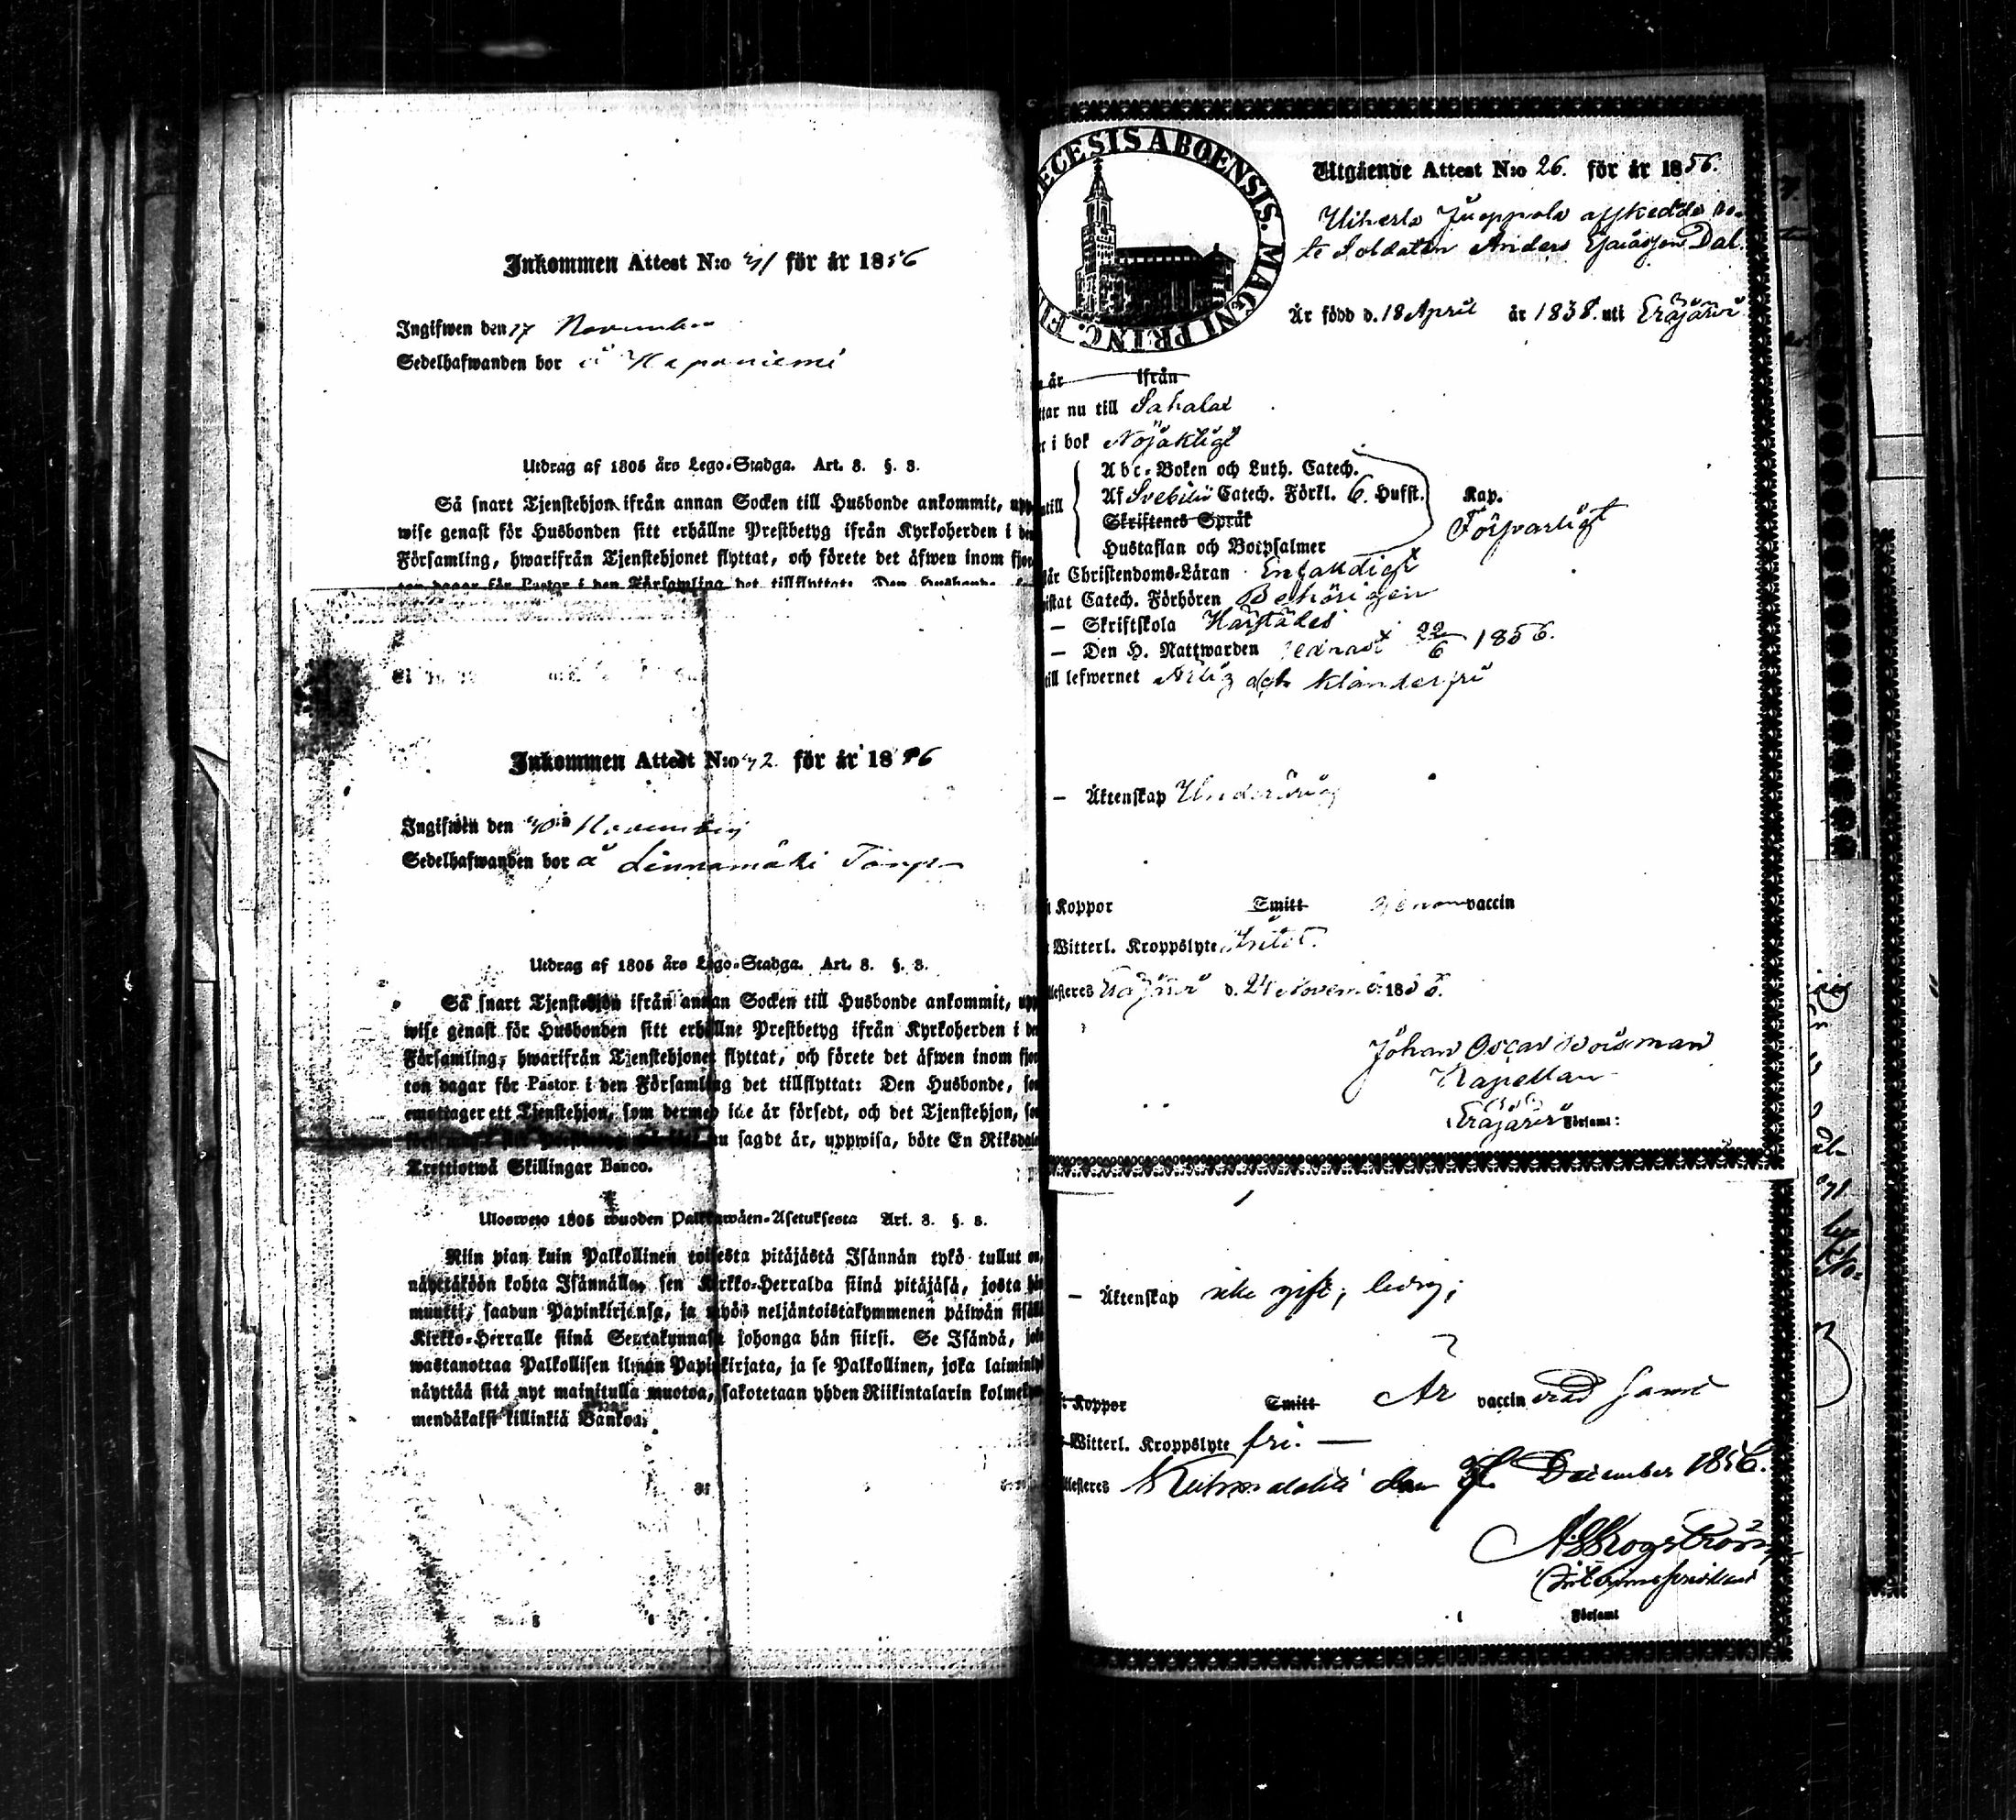 Inkommen Attest N:o 31 för år 1856
Ingifwen den 17 November
Sedelhafwanden bor å Haponiemi
Utdrag af 1805 års Lego-Stadga. Art. 3. §. 3.
Så snart Tjenstehjon ifrån annan Socken till Husbonde ankommit, upp
wise genast för Husbonden sitt erhållne Prestbetyg ifrån Kyrkoherden i den
Församling, hwarifrån Tjenstehjonet flyttat, och förete det äfwen inom fjor
ton dagar för Pastor i den Församling det tillflyttat: Den Husbonde,
Inkommen Attest N:o 32. för år 1856
Ingifwen den 30 November
Sedelhafwanden bor å Linnamäki Torp
Utdrag af 1805 års Lego-Stadga. Art. 3. §. 3.
Så snart Tjenstehjon ifrån annan Socken till Husbonde ankommit, upp
wise genast för Husbonden sitt erhållne Prestbetyg ifrån Kyrkoherden i den
Församling, hwarifrån Tjenstehjonet flyttat, och förete det äfwen inom fjor
ton dagar för Pastor i den Församling det tillflyttat: Den Husbonde,
emottager ett Tjenstehjon, som dermed icke är försedt, och det Tjenstehjon,
nu sagdt är, uppwisa, böte En Riksdaler
Trettiotwå Skillingar Banco.
Ulosweto 1805 wuoden Palkkawäen-Asetuksesta Art. 3. §. 3.
Niin pian kuin Palkollinen toisesta pitäjästä Isännän tykö tullut on,
näyttäköön kohta Isännälle, sen Kirkko-Herralda siinä pitäjäsä, josta hän
muutti, saadun Papinkirjansa, ja myös neljäntoistakymmenen päiwän sisällä
Kirkko-Herralle siinä Seurakunnasa johonga hän siirsi. Se Isändä, joka
wastanottaa Palkollisen ilman Papinkirjata, ja se Palkollinen, joka laiminlyö
näyttää sitä nyt mainitulla muotoa, sakotetaan yhden Riikintalarin kolmekym
mendäkaksi killinkiä Bankoa.
DIECESIS ABOENSIS. MAGNI PRINC. FI
Utgående Attest N:o 26. för år 1856.
Uiherla Juoppola afskedda ro-
te Soldaten Anders Dal
Är född d. 18 April år 1838. uti Eräjärvi
år ifrån
ttar nu till Sahalax
i bok Nöjaktigt
Abc-Boken och Luth. Catech.
ntill Af Svebilii Catech. Förkl. 6. Hufst. Kap.
Skriftenes Språk Försvarligt
Hustaflan och Botpsalmer
tår Christendoms-Läran Enfaldigt
istat Catech. Förhören Behörigen
— Skriftskola Härstädes
— Den H. Nattwarden sednast 22/6 1856.
till lefwernet Ärlig och klanderfri
— Äktenskap
Koppor Smitt genom vaccin
Witterl. Kroppslyte
llesteres Eräjärvi d. 24 November 1856.
Johan Oscar Roisman
Kapellan
Eräjärvi Församl:
— Äktenskap icke gift, ledig;
t Koppor Smitt Är vaccin erad samt
Witterl. Kroppslyte fri. —
llesteres Kuhmalahti den December 1856.
A. Skogström
Församl